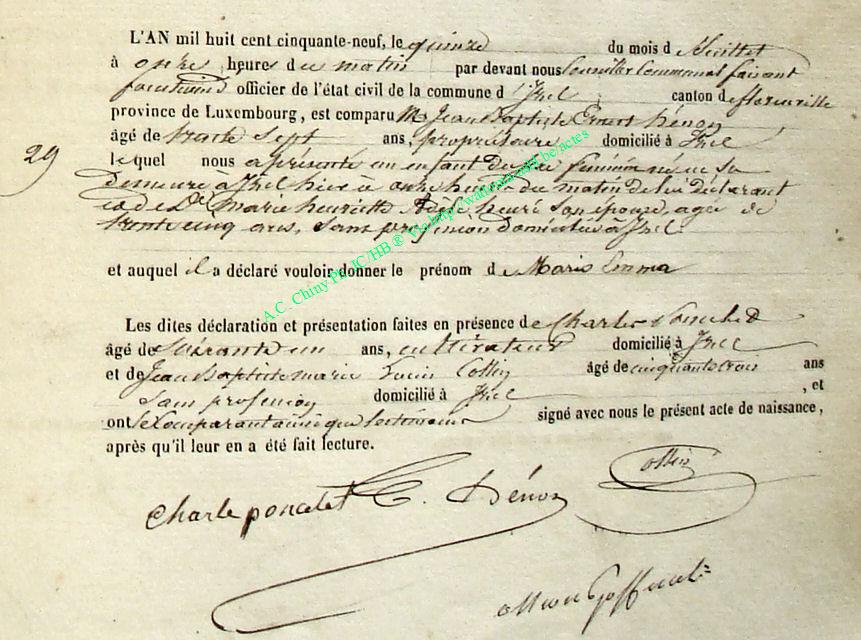 L'AN mil huit cent cinquante-neuf, le quinze du mois de Juillet
à onze heures du matin par devant nous Conseiller Communal faisant
fonctions officier de l'état civil de la commune d'Izel canton de florenville
province de Luxembourg, est comparu Mr Jean Baptiste Ernest Dénon
29
âgé de trente sept ans, propriétaire domicilié à Izel
lequel nous a présenté un enfant du sexe féminin né en sa
demeure à Izel hier à onze heures du matin de lui déclarant
et de De Marie henriette Adèle henri son épouse, agée de
trente cinq ans, sans profession domiciliée à Izel
et auquel il a déclaré vouloir donner le prénom de Marie Emma
Les dites déclaration et présentation faites en présence de Charles Poncelet
âgé de soixante un ans, cultivateur domicilié à Izel
et de Jean Baptiste marie Louis Collin âgé de cinquante trois ans
sans profession domicilié à Izel , et
ont le Comparant ainsi que les témoins signé avec nous le présent acte de naissance,
après qu'il leur en a été fait lecture.
Collin
Charle poncelet E. Dénon
A.C. Chiny Ph JC/HB ®